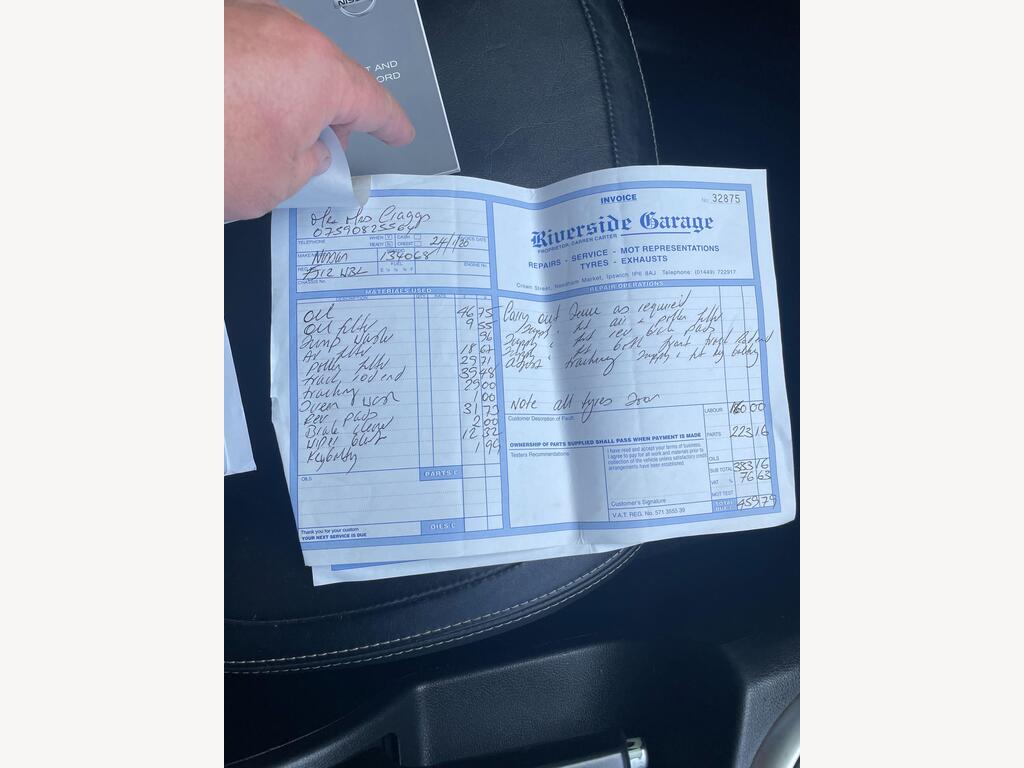 NISSAN
T AND
ORD
Mr Mrs Craggs
07590825564
TELEPHONE
WHEN READY
CASH
CREDIT
24/1/20
DATE
MAKE
Nissan
134068
FUEL
REG
ENGINE No.
CHASSIS No.
INVOICE
No. 32875
Riverside Garage
PROPRIETOR: DARREN CARTER
REPAIRS - SERVICE - MOT REPRESENTATIONS
TYRES - EXHAUSTS
Crown Street, Needham Market, Ipswich IP6 8AJ Telephone: (01449) 722917
MATERIALS USED
DESCRIPTION
Oil 46 75
Oil filter 9 55
Sump Wash 96
Air filter 18 67
Pollen filter 29 71
track rod end 39 48
tracking 29 00
Screen Wash 1 00
Rear Pads 31 73
Brake cleaner 2 00
Wiper blade 12 32
Key battery 1 99
PARTS £
OILS
OILS £
Thank you for your custom
YOUR NEXT SERVICE IS DUE
REPAIR OPERATIONS
Carry out Service as required
Supply & fit air & pollen filter
Supply & fit rear brake pads
Supply & fit both front track rod end
adjust tracking Supply & fit key battery
Note all tyres
Customer Description of Fault
OWNERSHIP OF PARTS SUPPLIED SHALL PASS WHEN PAYMENT IS MADE
Testers Recommendations:
I have read and accept your terms of business.
I agree to pay for all work and materials prior to
collection of the vehicle unless satisfactory credit
arrangements have been established.
Customer's Signature
V.A.T. REG. No. 571 3555 39
LABOUR 160 00
PARTS 223 16
OILS
SUB TOTAL 383 16
VAT % 76 63
MOT TEST
TOTAL DUE £ 459.79